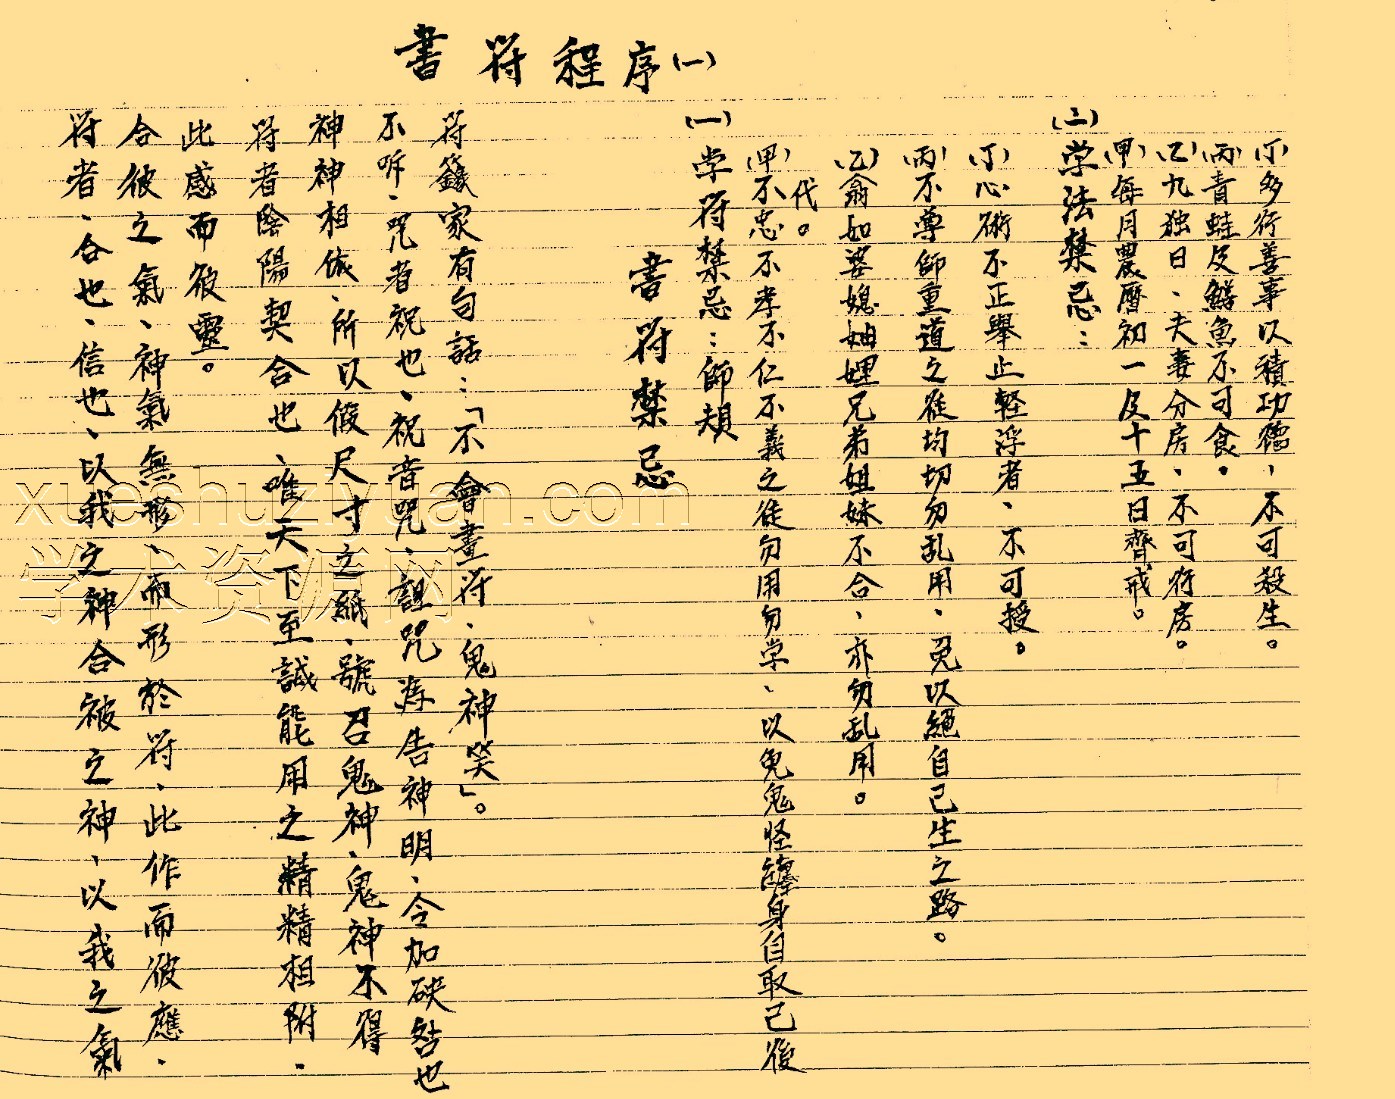 書符程序(一)
符者、合也、信也、以我之神合被之神、以我之氣
合彼之氣、神氣無形、而形於符、此作而彼應、
此感而彼靈。
符者陰陽契合也、唯天下至誠能用之精精相附、
神神相依、所以假尺寸之紙、號召鬼神、鬼神不得
不吁、咒者祝也、祝音咒、詛咒為告神明、令加殃咎也
符籙家有句話：「不會畫符、鬼神笑」。
書符禁忌
(一)学符禁忌：師頰
(甲)不忠不孝不仁不義之徒勿用勿学、以免鬼怪纏身自取己後
代。
(乙)翁如婆媳妯娌兄弟姐妹不合、亦勿乱用。
(丙)不尊師重道之徒均切勿乱用、免以絕自己生之路。
(丁)心術不正舉止輕浮者、不可授。
(二)学法禁忌：
(甲)每月農曆初一及十五日齊戒。
(乙)九独日、夫妻分房、不可行房。
(丙)青蛙及鱔魚不可食。
(丁)多行善事以積功德、不可殺生。
xueshuziyuan.com
学术资源网